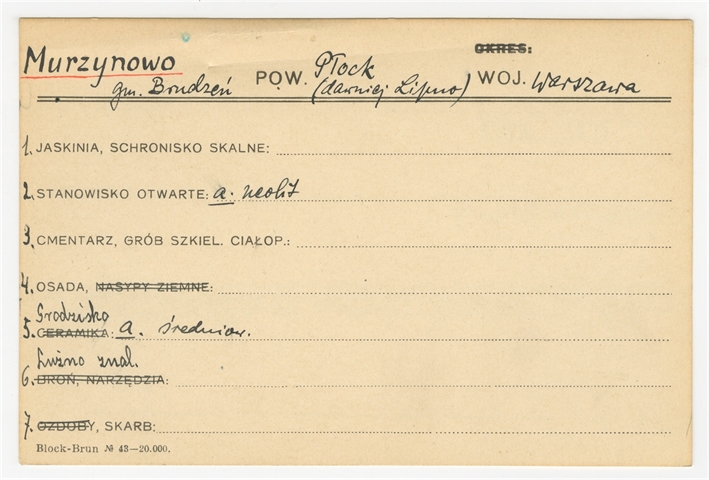 OKRES:
Murzynowo
gm. Brudzeń POW. Płock (dawniej Lipno) WOJ. Warszawa
1. JASKINIA, SCHRONISKO SKALNE:
2. STANOWISKO OTWARTE: a. neolit
3. CMENTARZ, GRÓB SZKIEL. CIAŁOP.:
4. OSADA, NASYPY ZIEMNE:
Grodzisko
5. CERAMIKA: a. średniow.
Luźno znal.
6. BROŃ, NARZĘDZIA:
7. OZDOBY, SKARB:
Block-Brun № 43—20.000.